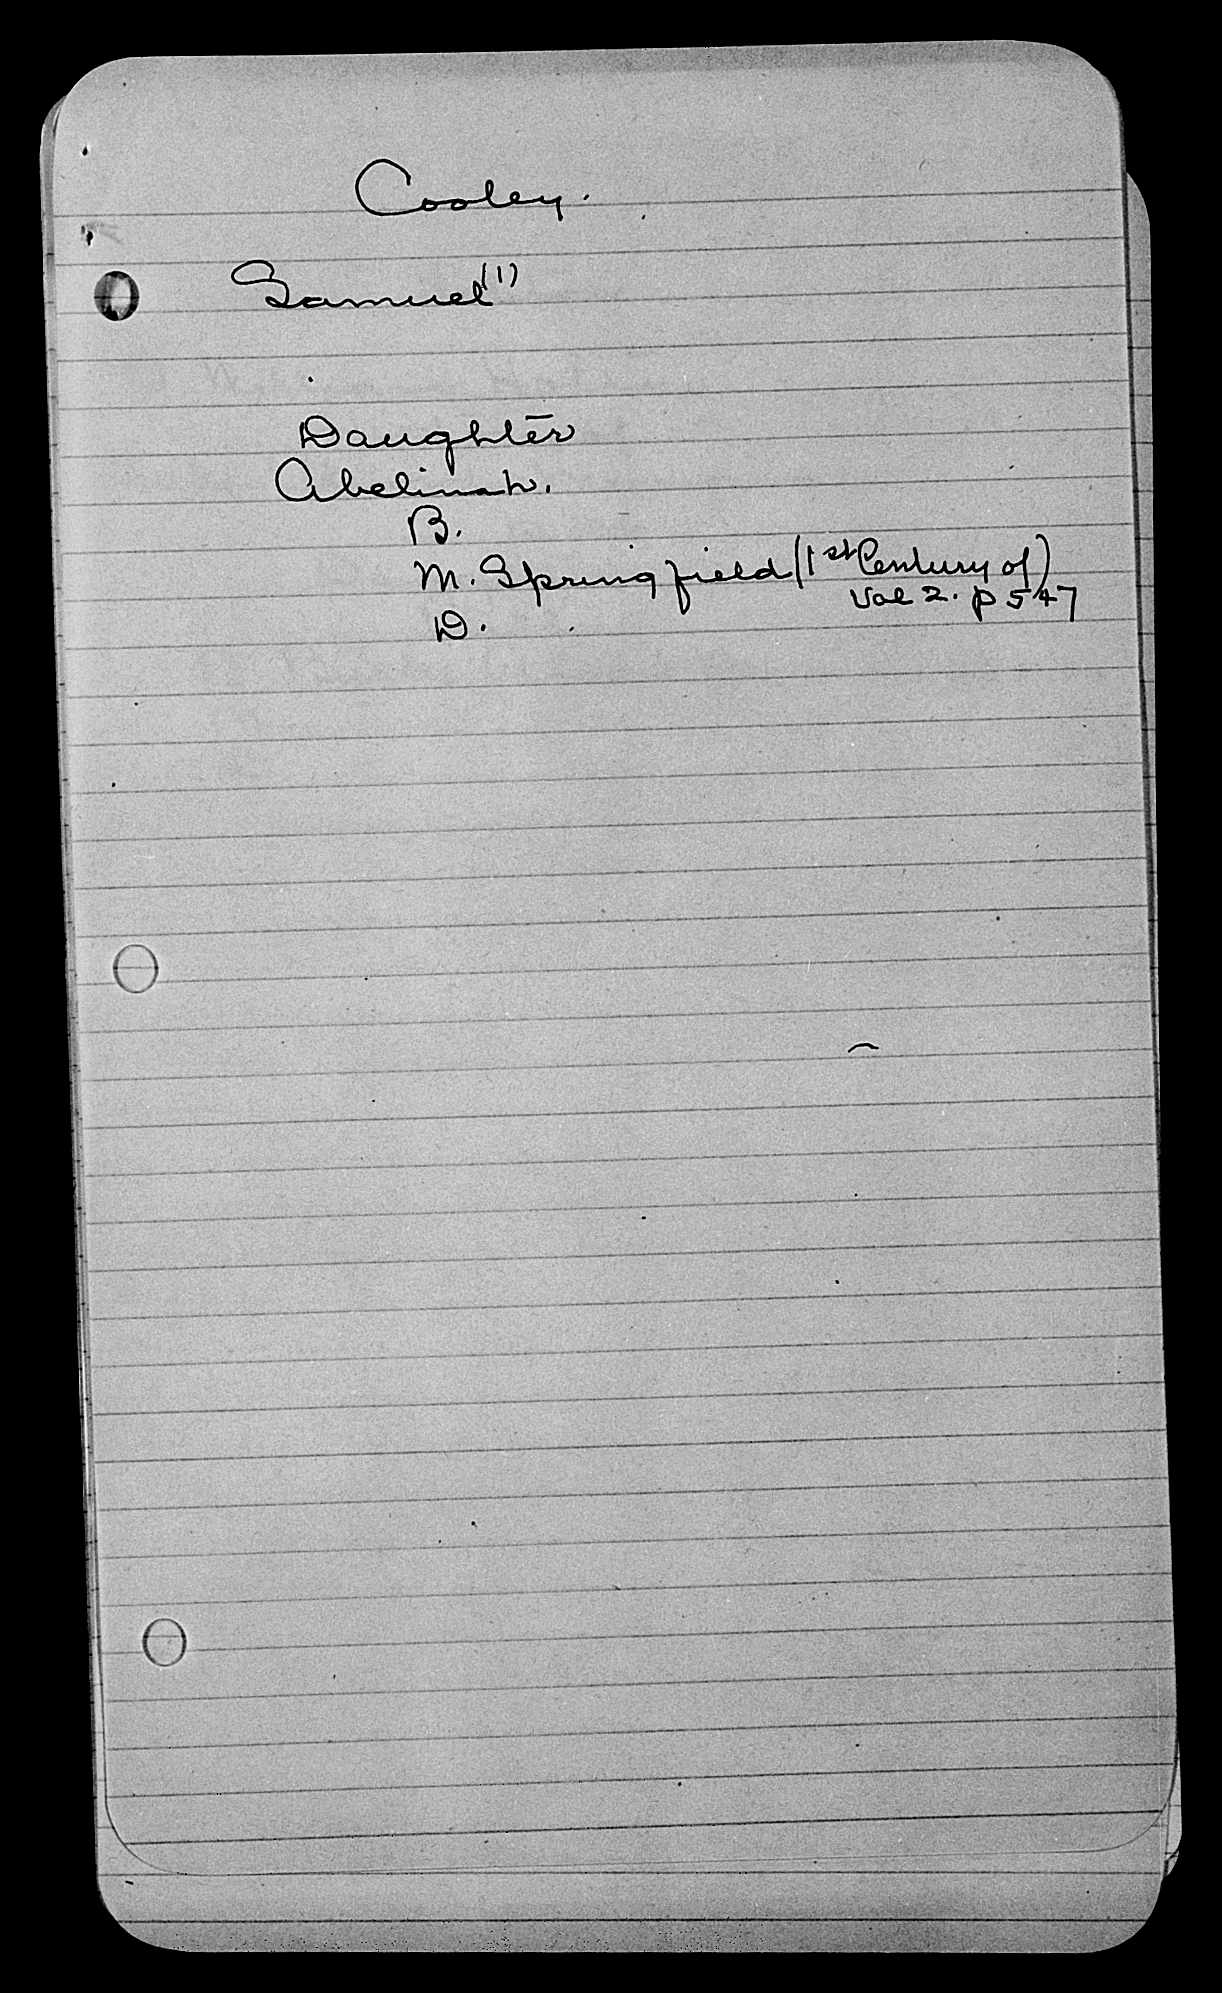 Cooley.
Samuel (1)
Daughter
Abelinah.
B.
M. Springfield (1st Century of)
Vol 2. p 547
D.